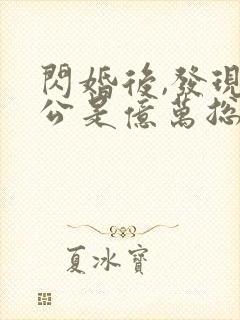 閃婚後,發現
公是億萬總
夏冰寶